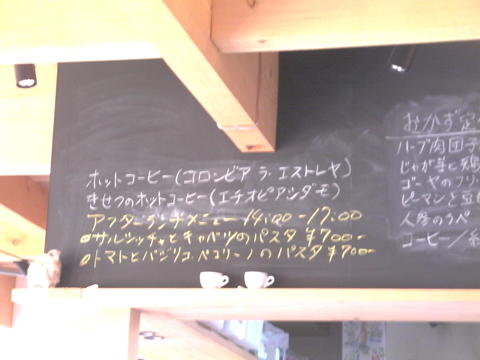 ホットコーヒー(コロンビア ラ・エストレヤ)
きせつのホットコーヒー(エチオピアシダモ)
アフターランチメニュー 14:00-17:00
サルシッチャとキャベツのパスタ ¥700-
トマトとバジリコ、ペコリーノのパスタ ¥700-
おかず定
ハーブ肉団子
じゃが芋と鶏
ゴーヤのフリ
ピーマンと豆
人参のラペ
コーヒー/紅